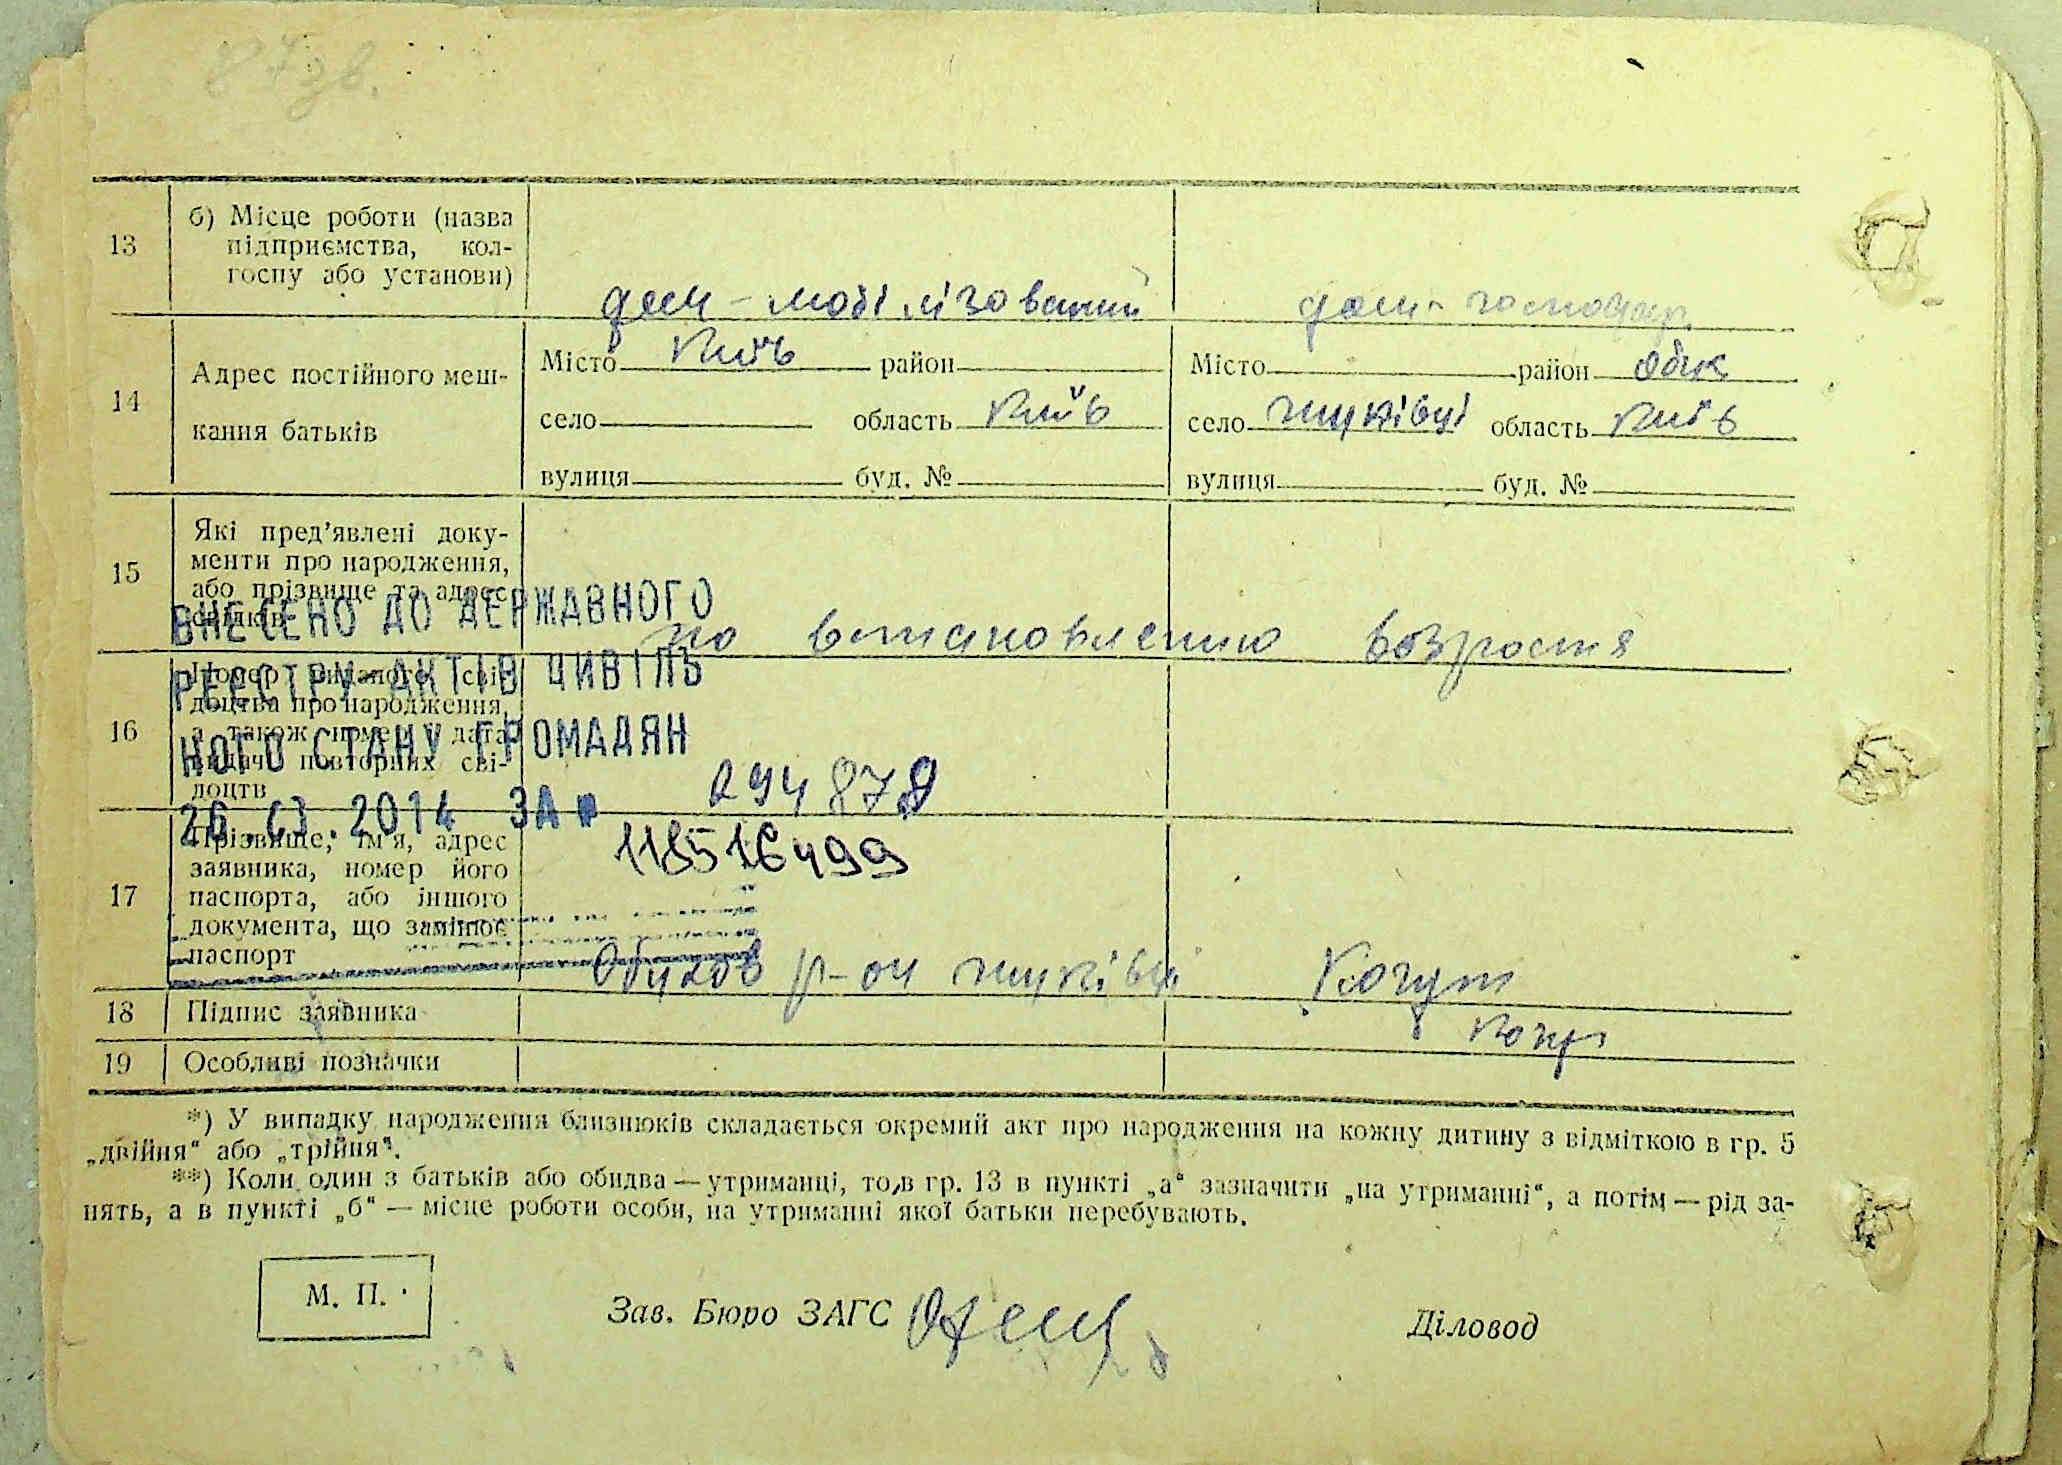 13
б) Місце роботи (назва
підприємства, кол-
госпу або установи)
дем-мобілізований
дом-господар
14
Адрес постійного меш-
кання батьків
Місто Київ район
село область Київ
вулиця буд. №
Місто район Обух
село область Київ
вулиця буд. №
15
Які пред'явлені доку-
менти про народження,
або прізвище та адрес
свідків
по встановлению возроста
16
Номер виданого сві-
доцтва про народження,
а також номер і дата
видачі повторних сві-
доцтв
294878
17
Прізвище, ім'я, адрес
заявника, номер його
паспорта, або іншого
документа, що замінює
паспорт
118516499
Обухов р-он Когут
ВНЕСЕНО ДО ДЕРЖАВНОГО
РЕЄСТРУ АКТІВ ЦИВІЛЬ
НОГО СТАНУ ГРОМАДЯН
2014 ЗА №
18
Підпис заявника
19
Особливі позначки
*) У випадку народження близнюків складається окремий акт про народження на кожну дитину з відміткою в гр. 5
„двійня“ або „трійня“.
**) Коли один з батьків або обидва — утриманці, то, в гр. 13 в пункті „а“ зазначити „на утриманні“, а потім — рід за-
нять, а в пункті „б“ — місце роботи особи, на утриманні якої батьки перебувають.
М. П.
Зав. Бюро ЗАГС
Діловод